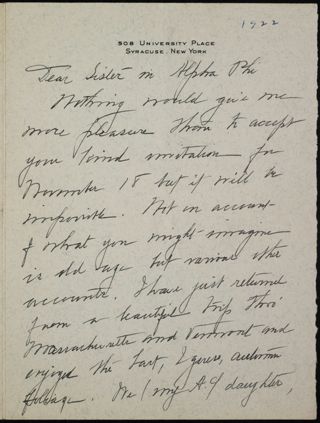 1922
508 University Place
Syracuse, New York
Dear Sister in Alpha Phi
Nothing would give me
more pleasure than to accept
your kind invitation for
November 18 but it will be
impossible. Not on account
of what you might imagine
is old age but various other
accounts. I have just returned
from a beautiful trip thro'
Massachusetts and Vermont and
enjoyed the last, I guess, autumn
foliage. We (my A.Φ daughter,